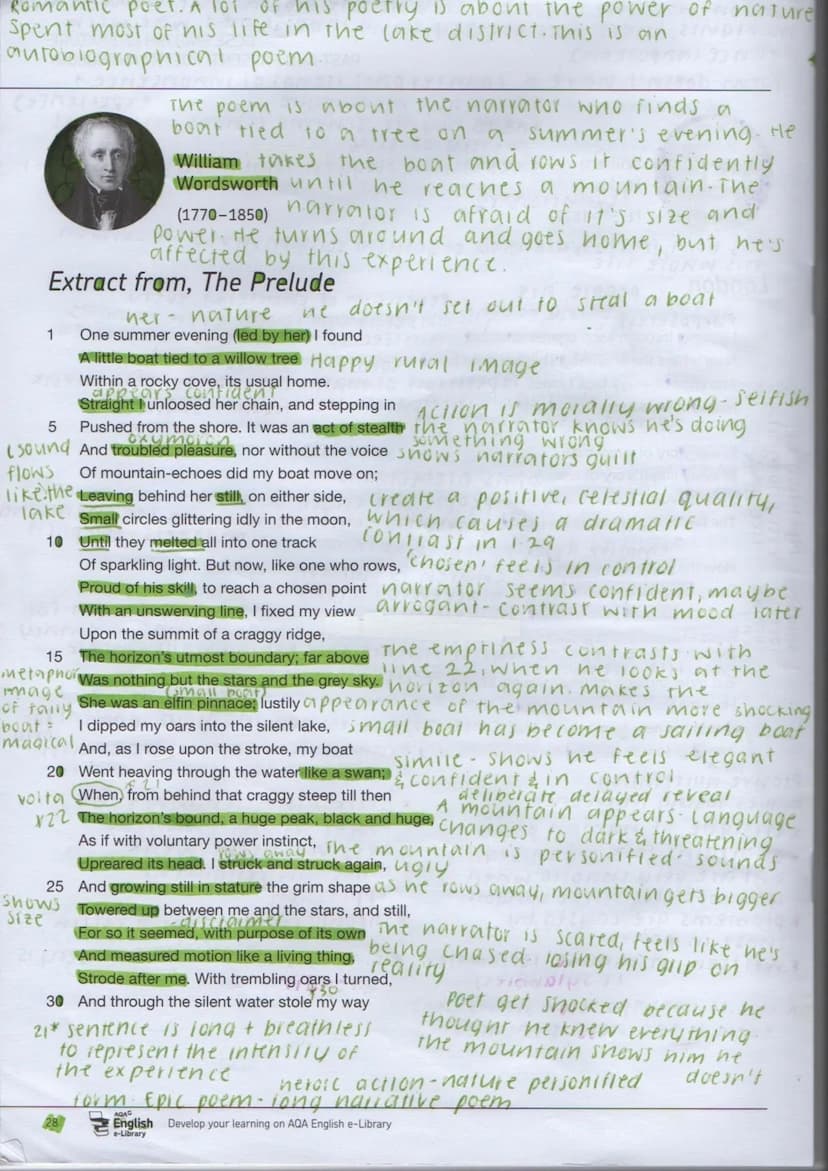 Romantic poet. A lot of his poetry is about the power of nature
Spent most of his life in the lake district. This is an
autobiographical poem.
The poem is about the narrator who finds a
boat tied to a tree on a summer's evening. He
William takes the boat and rows it confidently
Wordsworth until he reaches a mountain. The
(1770–1850) narrator is afraid of it's size and
power. He turns around and goes home, but he's
affected by this experience.
Extract from, The Prelude
her - nature he doesn't set out to steal a boat
1 One summer evening (led by her) I found
A little boat tied to a willow tree Happy rural image
Within a rocky cove, its usual home.
appears confident
Straight I unloosed her chain, and stepping in Action is morally wrong - selfish
5 Pushed from the shore. It was an act of stealth the narrator knows he's doing
oxymoron something wrong
And troubled pleasure, nor without the voice shows narrators guilt
(sound
flows
like the
lake
Of mountain-echoes did my boat move on;
Leaving behind her still, on either side, create a positive, celestial quality,
Small circles glittering idly in the moon, which causes a dramatic
10 Until they melted all into one track contrast in l.29
Of sparkling light. But now, like one who rows, 'chosen' feels in control
Proud of his skill, to reach a chosen point narrator seems confident, maybe
With an unswerving line, I fixed my view arrogant - contrast with mood later
Upon the summit of a craggy ridge,
15 The horizon's utmost boundary; far above The emptiness contrasts with
Was nothing but the stars and the grey sky. line 22, when he looks at the
(small boat) horizon again. Makes the
She was an elfin pinnace; lustily appearance of the mountain more shocking
metaphor
image
of fairy
boat =
magical
I dipped my oars into the silent lake, small boat has become a sailing boat
And, as I rose upon the stroke, my boat
20 Went heaving through the water like a swan; simile - shows he feels elegant
& confident & in control
volta
*21
When, from behind that craggy steep till then deliberate delayed reveal
*22
The horizon's bound, a huge peak, black and huge, A mountain appears - language
changes to dark & threatening
As if with voluntary power instinct, The mountain is personified - sounds
rows away
Upreared its head. I struck and struck again, ugly
25 And growing still in stature the grim shape as he rows away, mountain gets bigger
shows
size
Towered up between me and the stars, and still,
- disclaimer
For so it seemed, with purpose of its own The narrator is scared, feels like he's
And measured motion like a living thing, being chased losing his grip on
Strode after me. With trembling oars I turned, reality
*30
30 And through the silent water stole my way
21* sentence is long + breathless
to represent the intensity of
the experience
Poet get shocked because he
thought he knew everything
The mountain shows him he
doesn't
heroic action - nature personified
form: Epic poem - long narrative poem
28 AQA English e-Library Develop your learning on AQA English e-Library